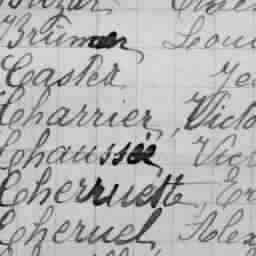 Brumen Leon
Castex Je
Charrier, Victo
Chaussée Vict
Cherruette, Er
Cheruel, Alex